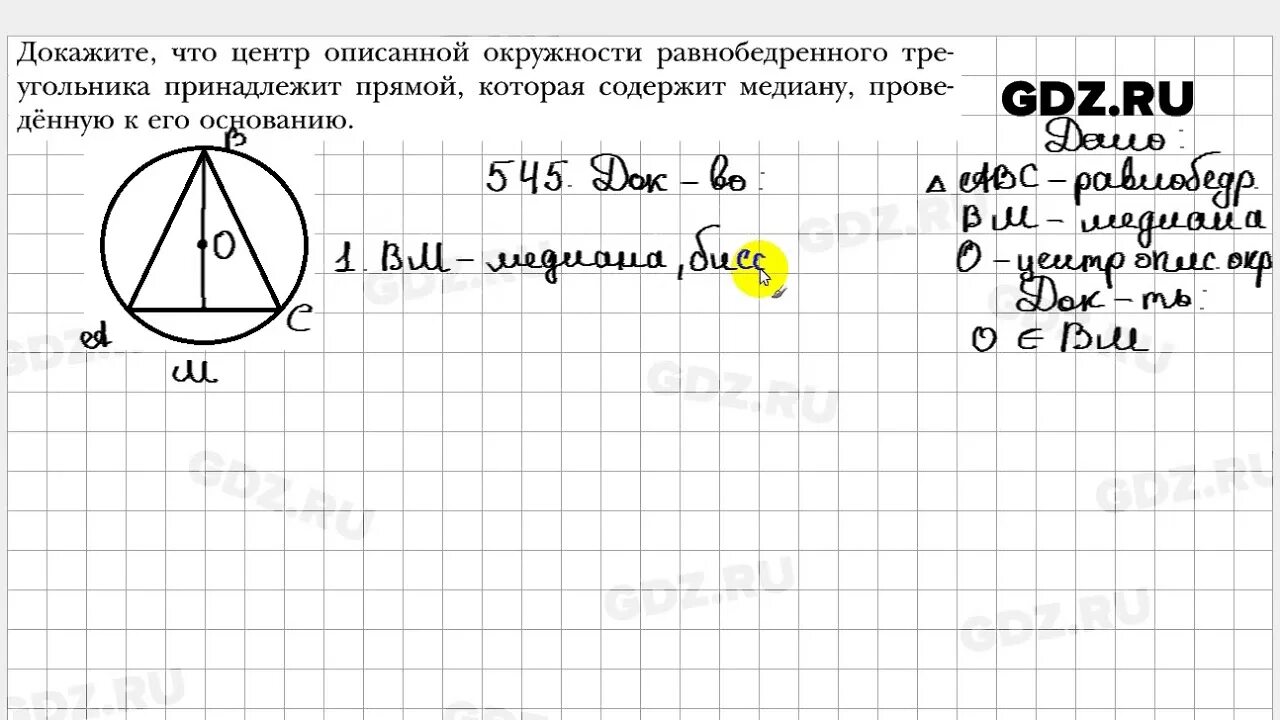 Докажите, что центр описанной окружности равнобедренного тре-
угольника принадлежит прямой, которая содержит медиану, прове-
дённую к его основанию.
GDZ.RU
Дано:
545. Док-во:
△ ABC – равнобедр.
BM – медиана
1. BM – медиана, бисс
O – центр опис. окр
Док-ть:
O ∈ BM
B
O
A
C
M
GDZ.RU
GDZ.RU
GDZ.RU
GDZ.RU
GDZ.RU
GDZ.RU
GDZ.RU
GDZ.RU
GDZ.RU
GDZ.RU
GDZ.RU